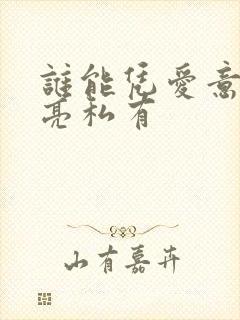 誰能凭愛意
亮私有
山有嘉卉